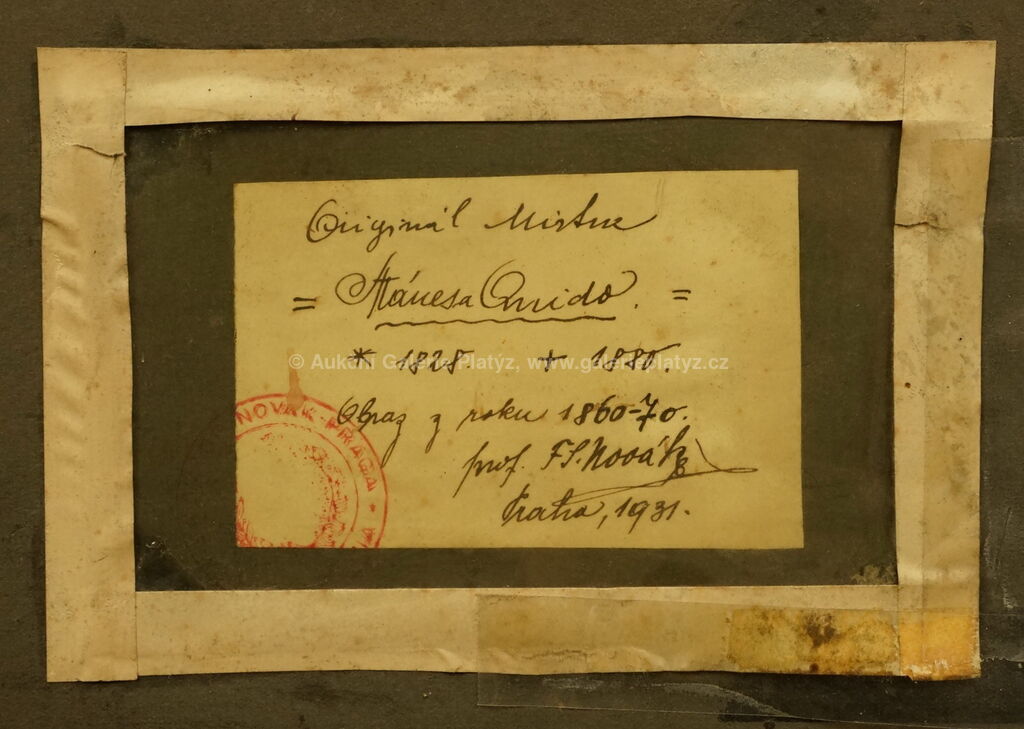 Originál Mistra
= Mánesa Quido. =
* 1828. + 1880.
© Aukční Galerie Platýz, www.galerieplatyz.cz
Obraz z roku 1860-70.
prof. F.S. Novák
Praha, 1931.
NOVÁK PRAGA *